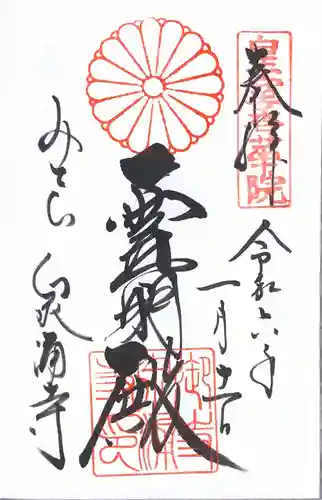 奉拝
皇室香華院
令和六年
一月十一日
霊明殿
みてら
泉涌寺